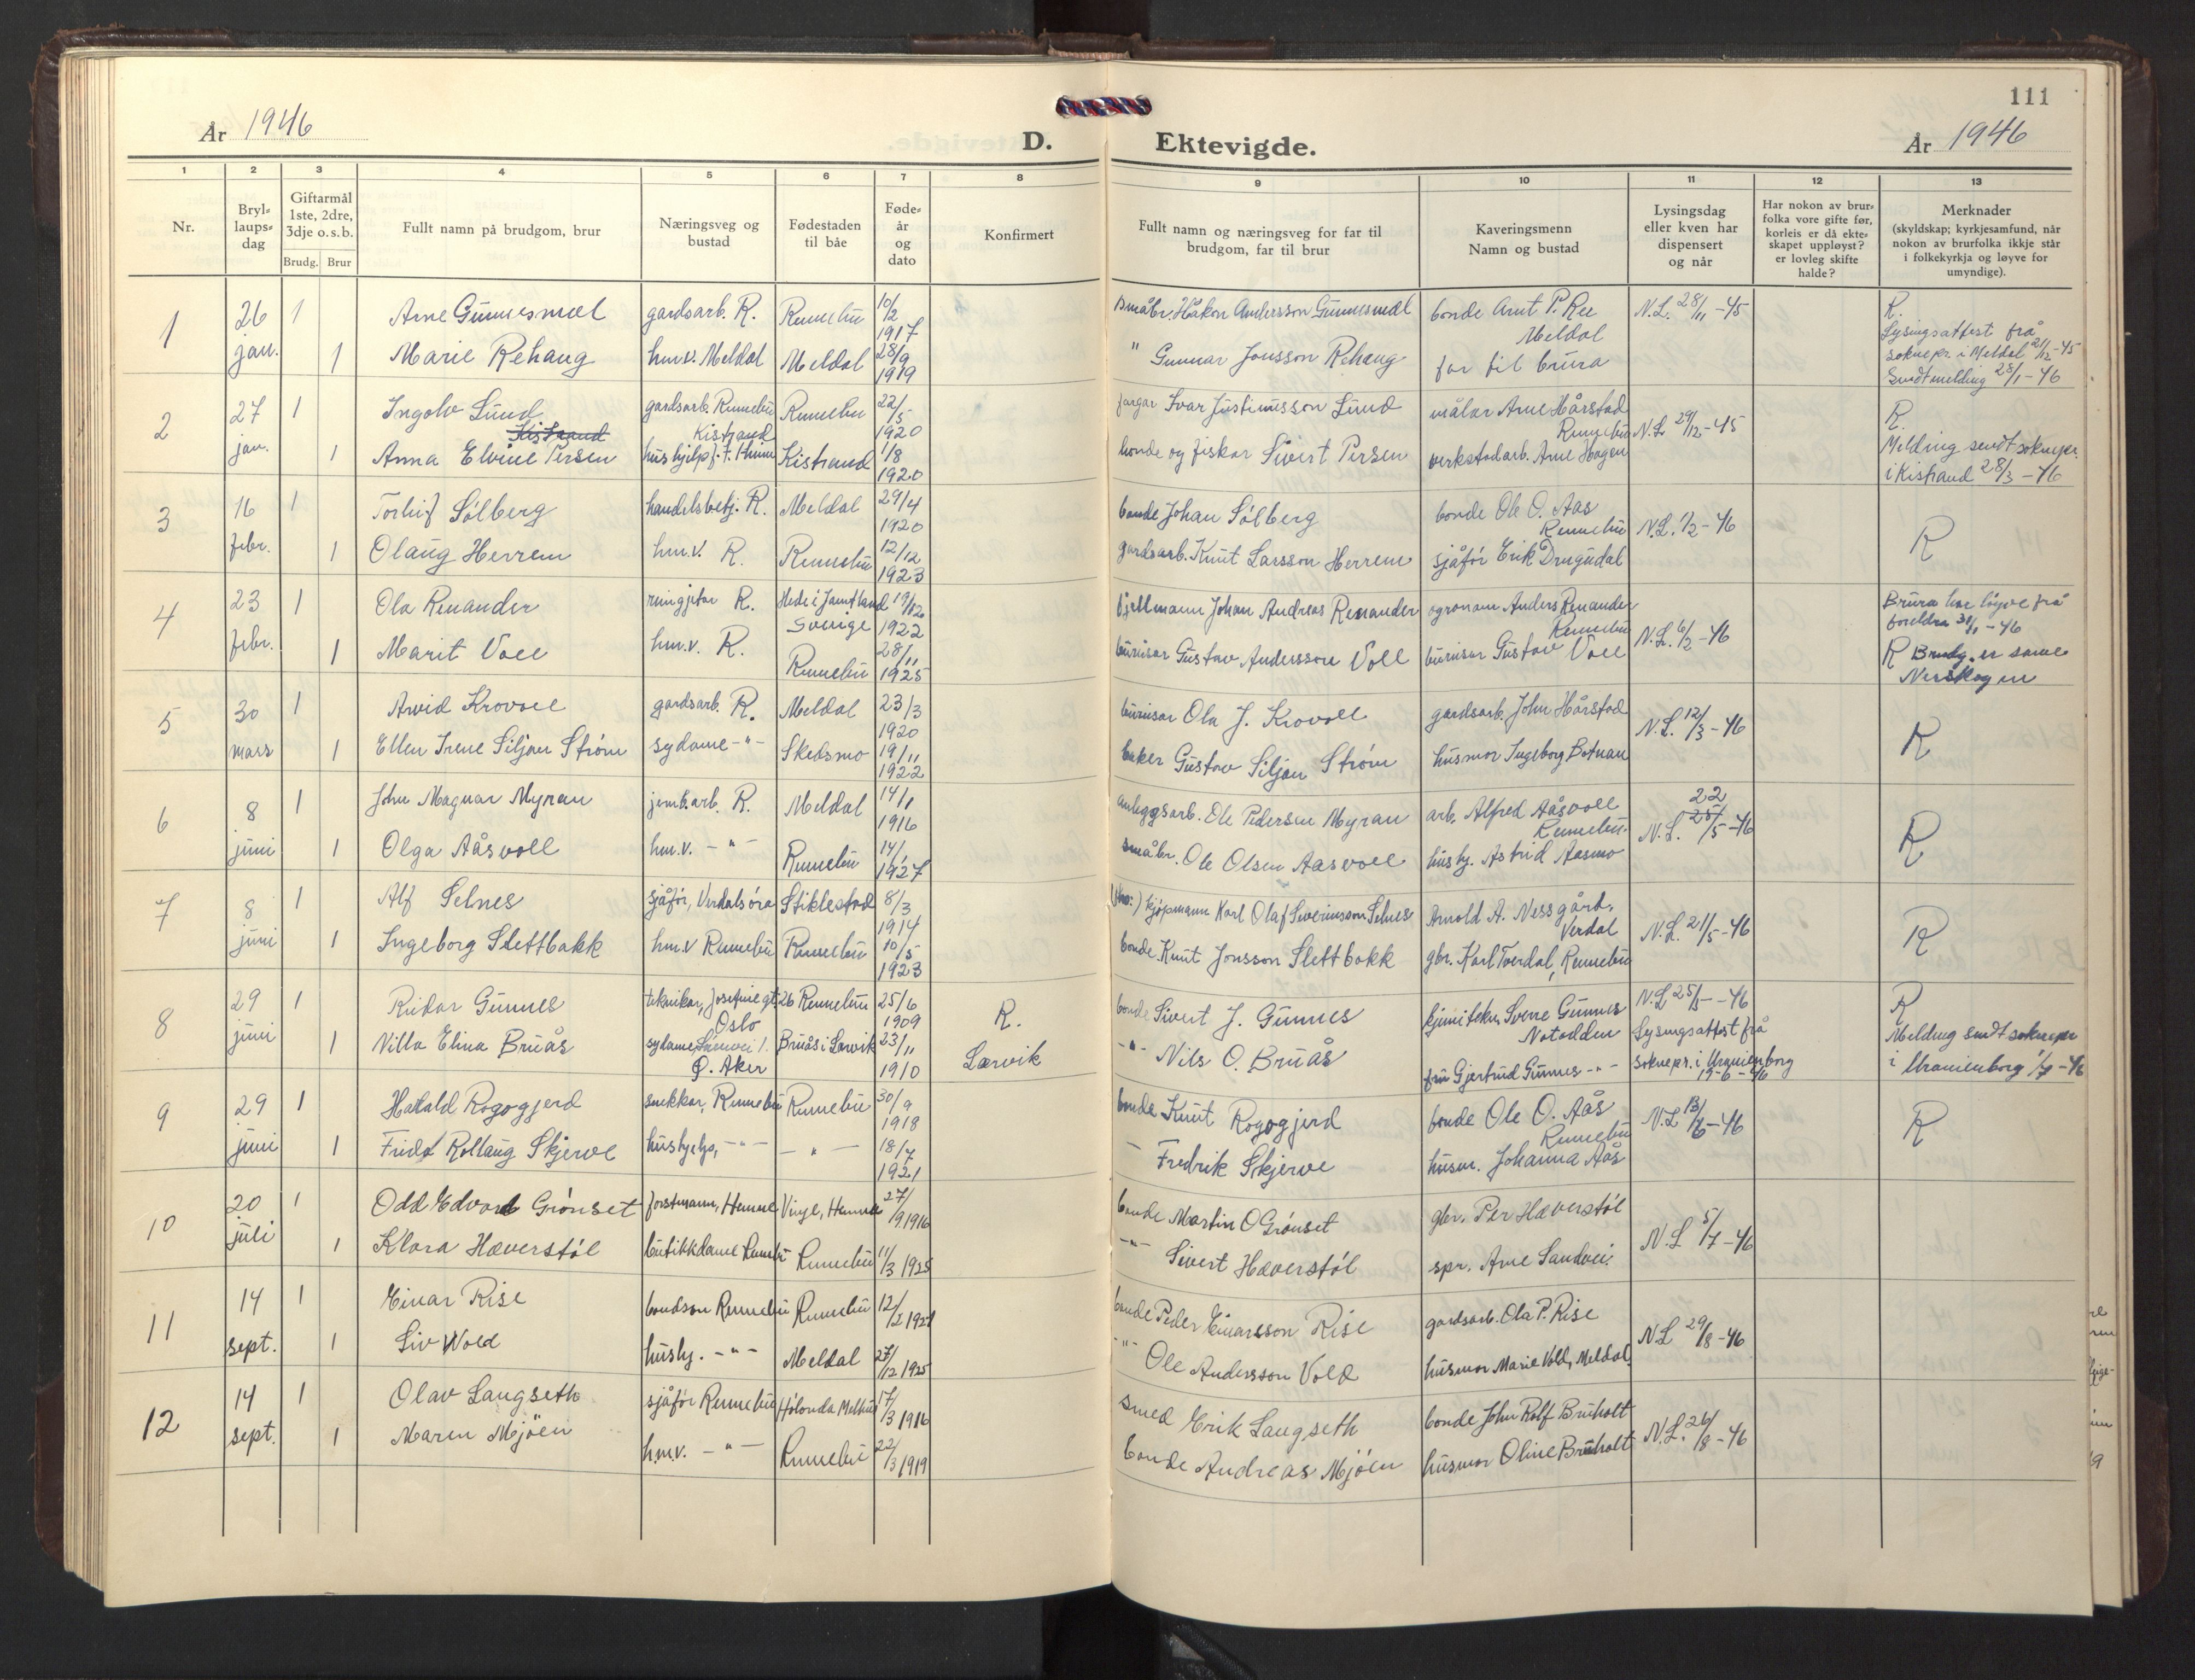 År 1946
D.
1 2 3 4 5 6 7 8
Nr.
Bryl-
laups-
dag
Giftarmål
1ste, 2dre,
3dje o.s.b.
Brudg. Brur
Fullt namn på brudgom, brur
Næringsveg og
bustad
Fødestaden
til båe
Føde-
år
og
dato
Konfirmert
1 26 jan. 1 Arne Gunnesmæl gardsarb. R. Rennebu 10/2 1917
1 Marie Rehaug hmv. Meldal Meldal 28/9 1919
2 27 jan. 1 Ingolv Lund gardsarb. Rennebu Rennebu 22/5 1920
Kistrand Kistrand
1 Anna Elvine Persen hushjelp Kistrand 1/8 1920
3 16 febr. 1 Torleif Sölberg handelsbetj. R. Meldal 29/4 1920
1 Olaug Herrem hm.v. R. Rennebu 12/12 1923
4 23 febr. 1 Ola Renander reingjetar R. Hede i Jamtland Sverige 19/12 1922
1 Marit Voll hm.v. R. Rennebu 28/11 1925
5 30 mars 1 Arvid Krovoll gardsarb. R. Meldal 23/3 1920
1 Ellen Irene Siljan Strøm sydame -"- Skedsmo 19/11 1922
6 8 juni 1 John Magnar Myran jernb.arb. R. Meldal 14/1 1916
1 Olga Aåsvoll hm.v. -"- Rennebu 14/1 1927
7 8 juni 1 Alf Selnes sjåfør, Verdalsöra Stiklestad 8/3 1914
1 Ingeborg Slettbakk hm.v Rennebu Rennebu 10/5 1923
8 29 juni 1 Reidar Gunnes teknikar, Josefinegt. 26 Oslo Rennebu 25/6 1909 R.
1 Villa Elina Bruås sydame Ø. Aker Bruås i Larvik 23/11 1910 Larvik
9 29 juni 1 Harald Rogogjerd snekkar, Rennebu Rennebu 30/9 1918
1 Frida Rollaug Skjerve hushjelp, -"- -"- 18/7 1921
10 20 juli 1 Odd Edvard Grönset forstmann, Hemne Vinje, Hemne 27/9 1916
1 Klara Hæverstöl butikkdame Rennebu Rennebu 11/3 1925
11 14 sept. 1 Einar Rise bondson Rennebu Rennebu 12/2 1921
1 Liv Wold hushj. -"- Meldal 27/12 1925
12 14 sept. 1 Olav Langseth sjåför Rennebu Hölonda Melhus 17/3 1916
1 Maren Mjöen h.m.v. -"- Rennebu 22/3 1919
111
Ektevigde.
År 1946
9 10 11 12 13
Fullt namn og næringsveg for far til
brudgom, far til brur
Kaveringsmenn
Namn og bustad
Lysingsdag
eller kven har
dispensert
og når
Har nokon av brur-
folka vore gifte før,
korleis er då ekte-
skapet uppløyst?
er lovleg skifte
halde?
Merknader
(skyldskap; kyrkjesamfund, når
nokon av brurfolka ikkje står
i folkekyrkja og løyve for
umyndige).
småbr. Håkon Andersson Gunnesmæl bonde Arnt P. Ree Meldal N.L. 28/11-45 R.
" Gunnar Jonsson Rehaug far til brura Lysingsattest frå soknepr. i Meldal 21/12-45
Sendt melding 28/1-46
fargar Ivar Justinusson Lund målar Arne Hårstad Rennebu N.L. 29/12-45 R.
bonde og fiskar Sivert Persen verkstadarb. Arne Hagen Melding sendt soknepr.
i Kistrand 28/3-46
bonde Johan Sölberg bonde Ole O. Aas Rennebu N.L. 1/2-46 R
gardsarb. Knut Larsson Herrem sjåför Erik Drugudal
fjellmann Johan Andreas Renander agronom Anders Renander Rennebu N.L. 6/2-46 Brura har löyve frå foreldra 31/1-46
bureisar Gustav Andersson Voll bureisar Gustav Voll R Brudg. er same
Nerskogen
bureisar Ola J. Krovoll gardsarb. John Hårstad N.L. 12/3-46 R
baker Gustav Siljan Strøm husmor Ingeborg Botnan
anleggsarb. Ole Pedersen Myran arb. Alfred Aåsvoll Rennebu N.L. 22 25/5-46 R
småbr. Ole Olsen Aasvoll hushj. Astrid Aasmo
kjöpmann Karl Olaf Severinsson Selnes Arnold A. Nessgård, Verdal N.L. 21/5-46 R
bonde Knut Jonsson Slettbakk gbr. Karl Tverdal, Rennebu
bonde Sivert J. Gunnes kjemitekn. Sverre Gunnes Notodden N.L 25/5-46 R
-"- Nils O. Bruås fru Gjertrud Gunnes -"- Lysingsattest frå soknepr. i Uranienborg 19-6-46 Melding sendt soknepr
i Uranienborg 1/7-46
bonde Knut Rogogjerd bonde Ole O. Aås Rennebu N.L 13/6-46 R
— Fredrik Skjerve husm. Johanna Aås
bonde Martin O Grönset gbr. Per Hæverstöl N.L 5/7-46
-"- Sivert Hæverstöl spr. Arne Sandvei.
bonde Peder Einarsson Rise gardsarb. Ola P. Rise N.L 29/8-46
-"- Ole Andersson Vold husmor Marie Vold, Meldal.
smed Erik Langseth bonde John Rolf Bruholt N.L. 26/8-46
bonde Andreas Mjöen husmor Oline Bruholt